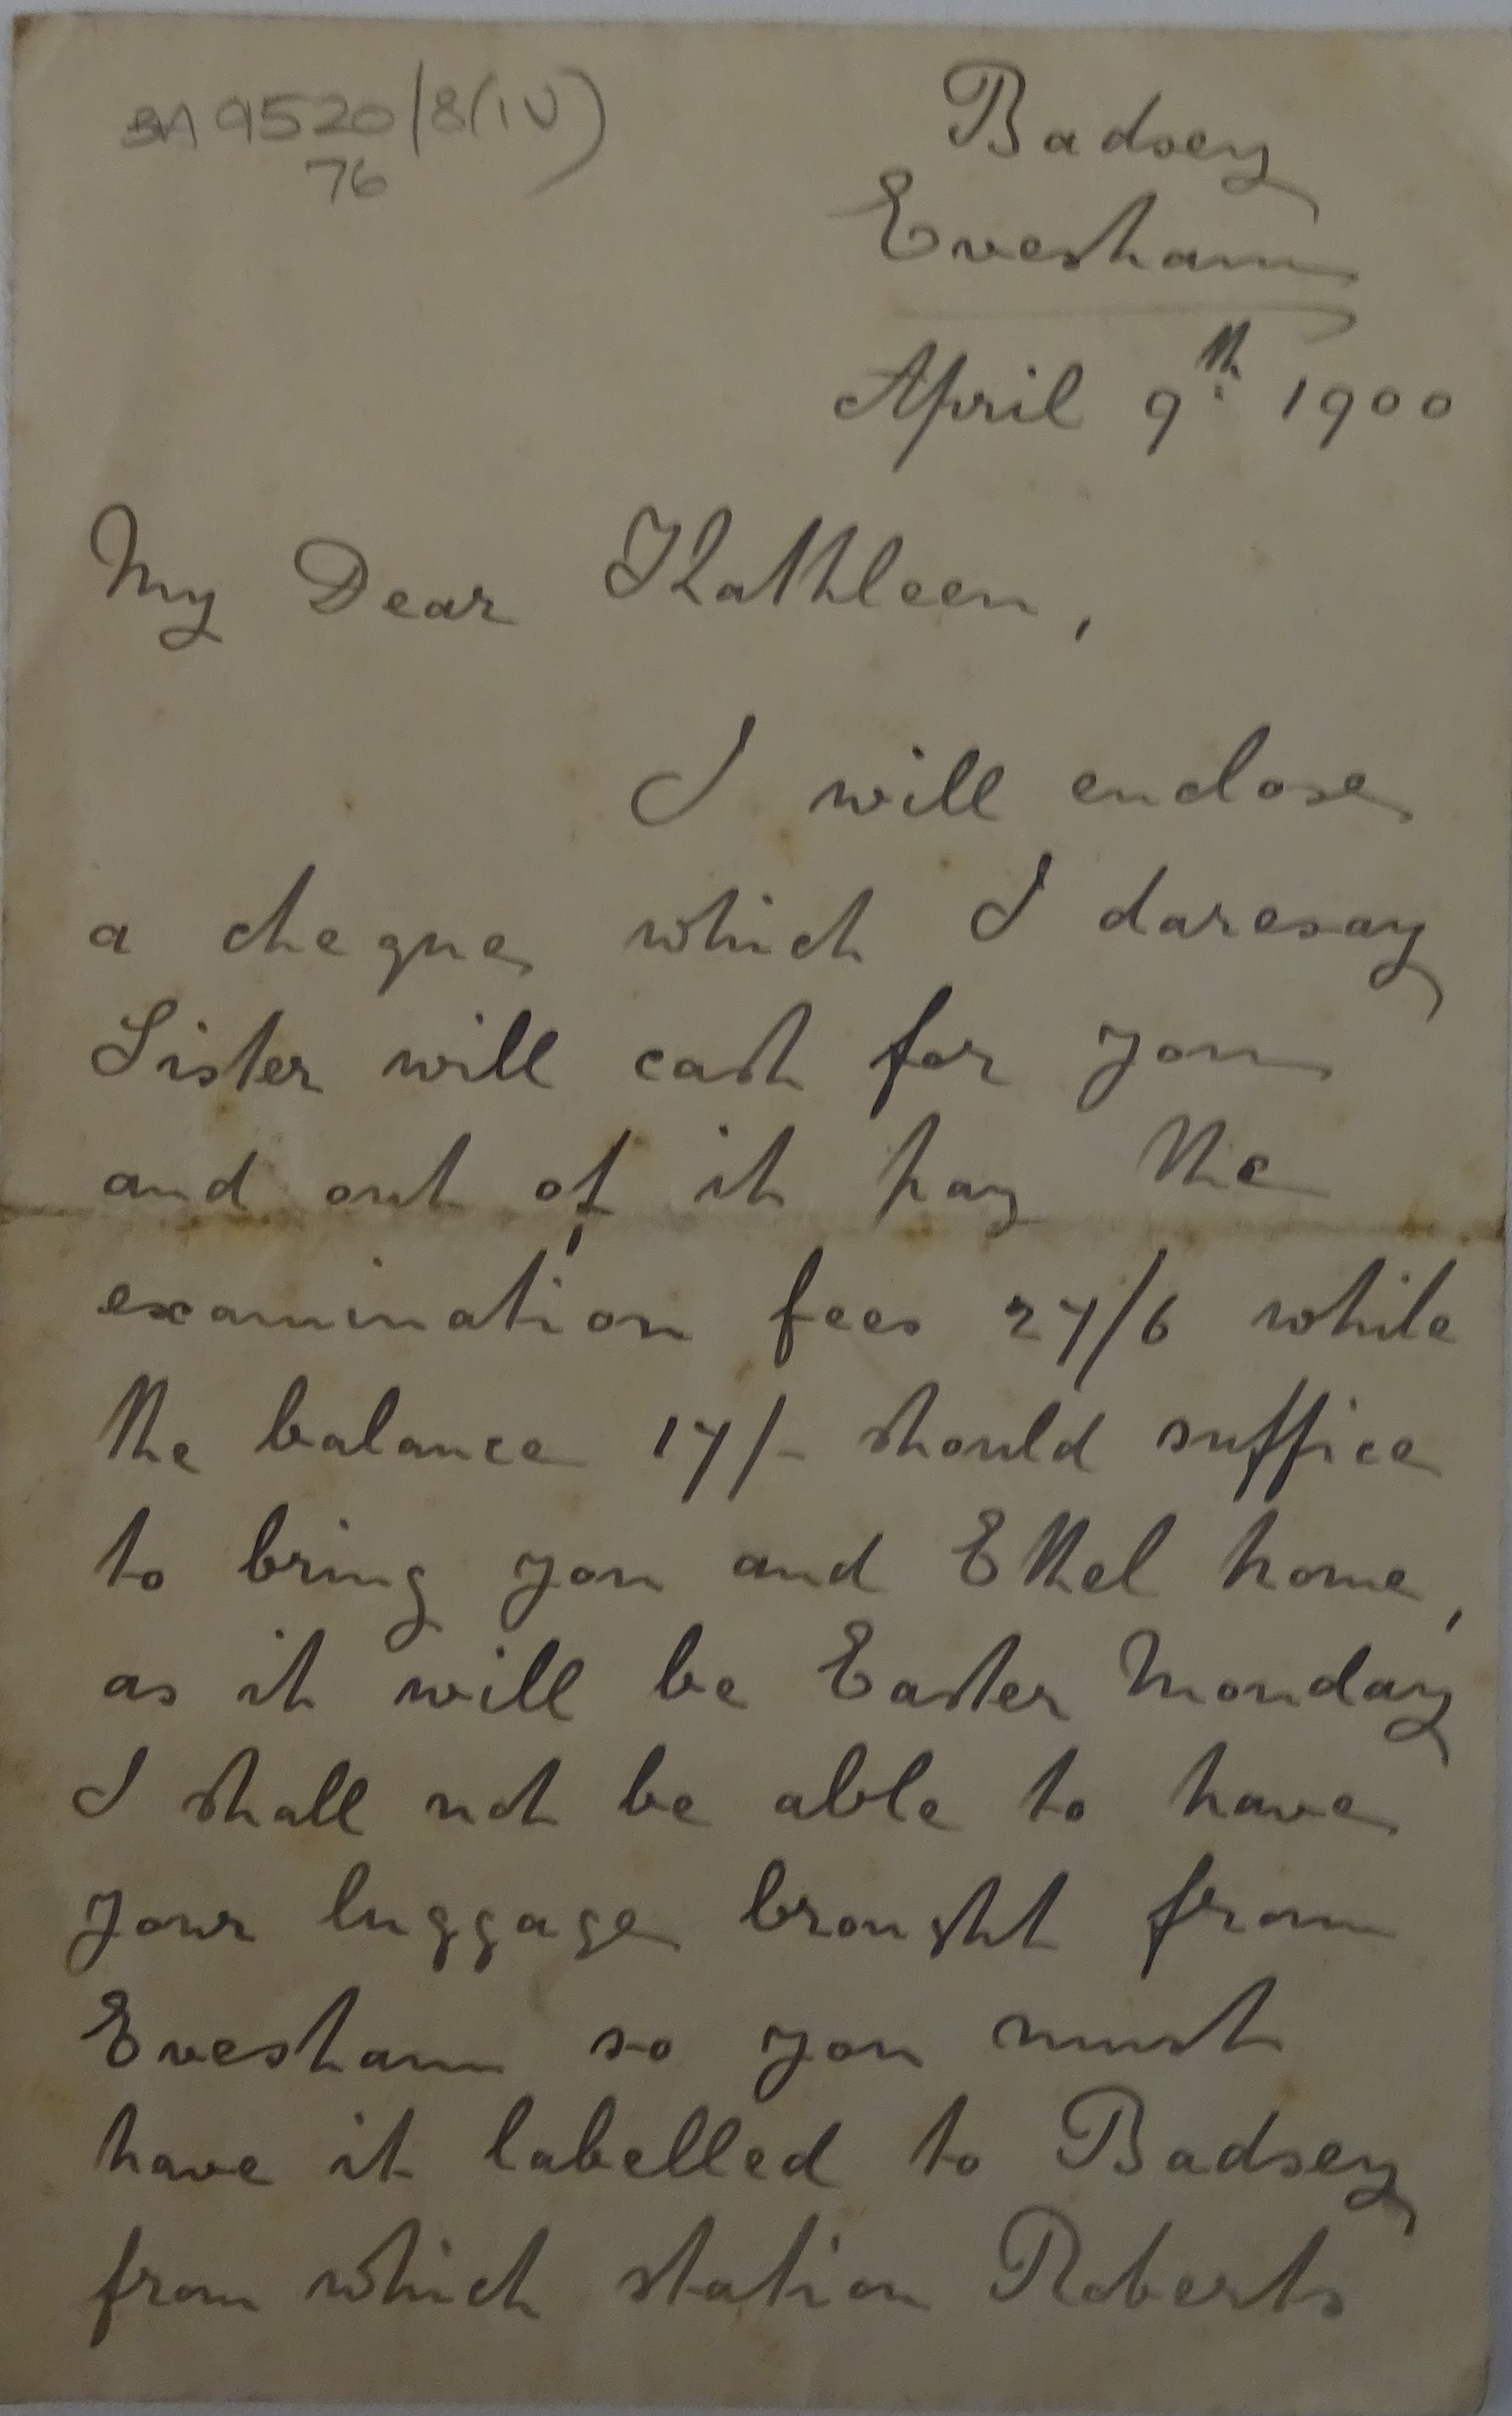 BA 9520/8(IV)
76
Badsey
Evesham
April 9th 1900
My Dear Kathleen,
I will enclose
a cheque which I daresay
Sister will cash for you
and out of it pay the
examination fees 27/6 while
the balance 17/- should suffice
to bring you and Ethel home,
as it will be Easter Monday
I shall not be able to have
your luggage brought from
Evesham so you must
have it labelled to Badsey
from which station Roberts